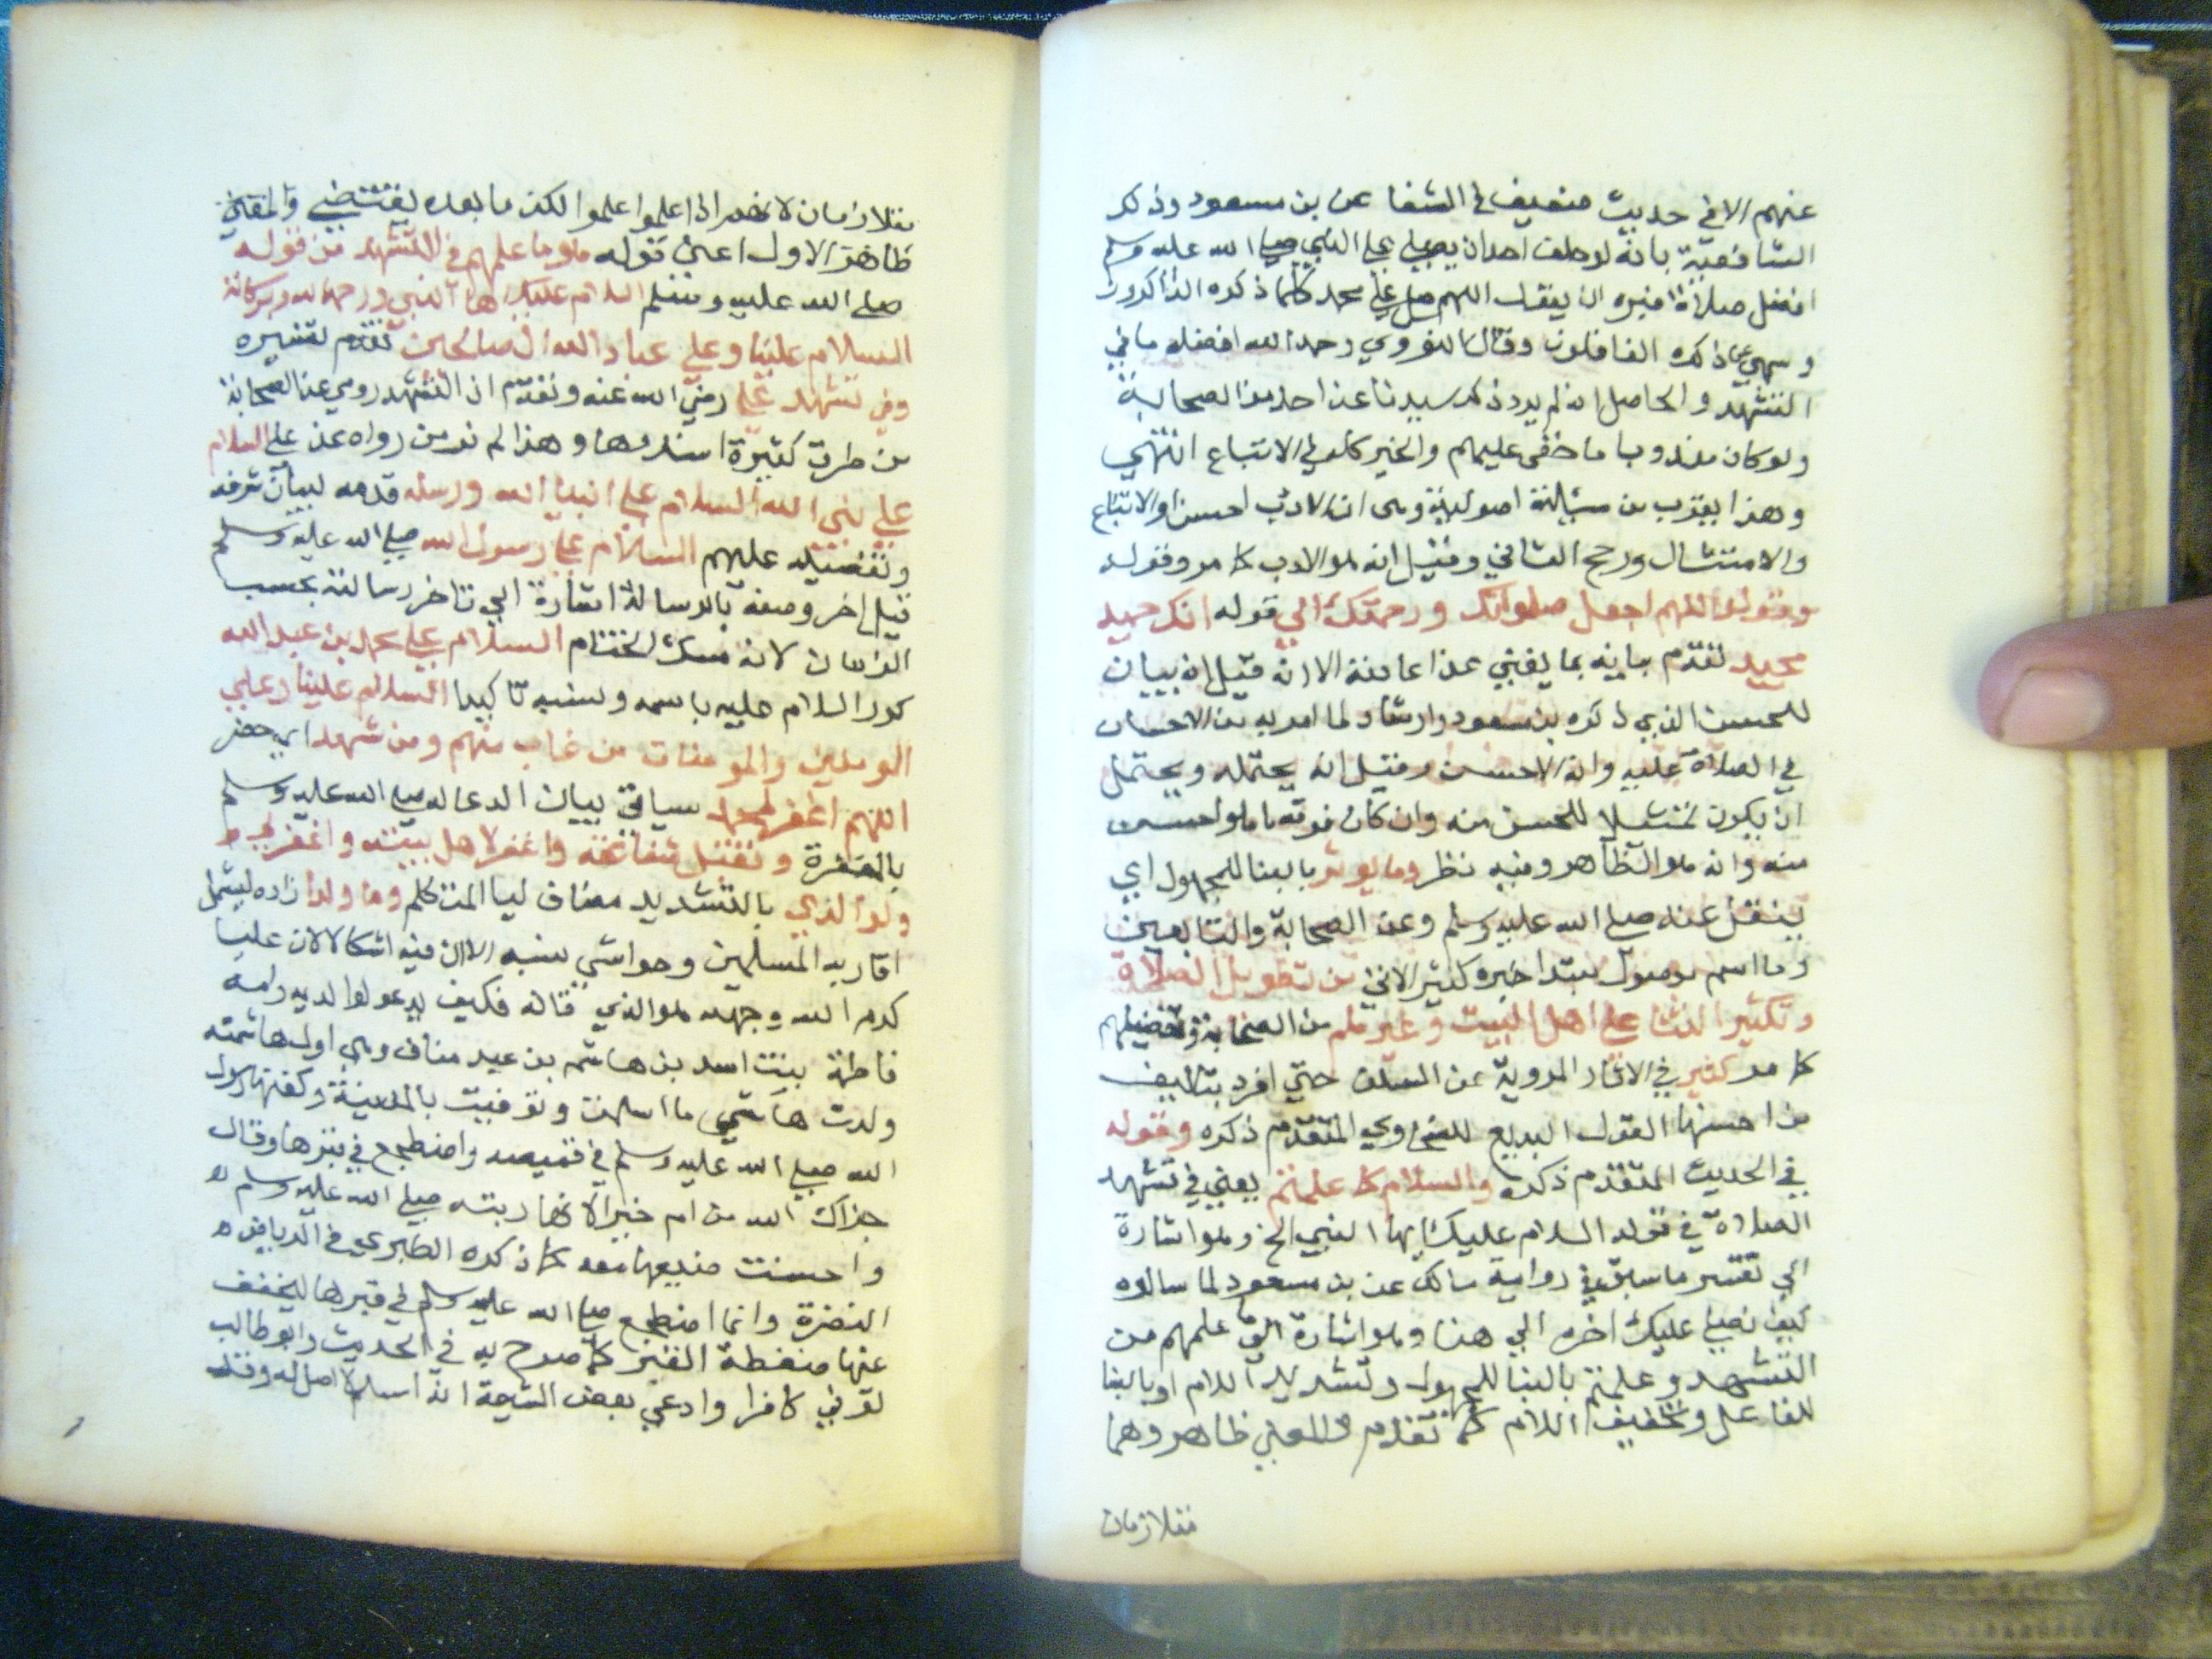 عنهم الا في حديث ضعيف في الشفا عن بن مسعود وذكر
الشافعية بانه لو حلف احد ان يصلي على النبي صلى الله عليه وسلم
افضل صلاة فبره ان يقل اللهم صل على محمد كلما ذكره الذاكرون
وسهى عن ذكره الغافلون وقال النووي رحمه الله افضله ما في
التشهد والحاصل انه لم يرد ذكر سيدنا عن احد من الصحابة
ولو كان مندوبا ما خفى عليهم والخير كله في الاتباع انتهي
وهذا يقرب من مسالة اصولية وهي ان الادب احسن او الاتباع
والامتثال ورجح الثاني وقيل انه هو الادب كما مر وقوله
وقوله اللهم اجعل صلواتك ورحمتك الي قوله انك حميد
مجيد تقدم بيانه بما يغني عن اعادته الا انه قيل انه بيان
للحسن الذي ذكره بن مسعود وارشاد لما امر به من الاحسان
في الصلاة عليه وانه الاحسن وقيل انه يحتمله ويحتمل
ان يكون تمثيلا للحسن منه وان كان فوقه ما هو احسن
منه وانه هو الظاهر وفيه نظر وما يوثر بالبنا للمجهول اي
ينقل عنه صلى الله عليه وسلم وعن الصحابة والتابعين
وما اسم موصول مبتدا خبره كثير الاتي من تطويل الصلاة
وتكثير الثنا على اهل البيت وغيرهم من الصحابة وتفضيلهم
كما مر كثير في الاثار المروية عن السلف حتي افرد بتاليف
من احسنها القول البديع للسخاوي المتقدم ذكره وقوله
في الحديث المتقدم ذكره والسلام كما علمتم يعني في تشهد
الصلاة في قوله السلام عليك ايها النبي الخ وهو اشارة
الي تفسير ما سبق في رواية مالك عن بن مسعود لما سالوه
كيف نصلي عليك اخره الي هنا وهو اشارة الى علمهم من
التشهد وعلمتم بالبنا للمجهول وتشديد اللام او بالبنا
للفاعل وتخفيف اللام كما تقدم والمعني ظاهر وهما
متلازمان
متلازمان لانهم اذا علموا علموا لكن ما بعده يقتضي
ظاهره الاول اعني قوله هو ما علمهم في التشهد من قوله
صلى الله عليه وسلم السلام عليك ايها النبي ورحمة الله وبركاته
السلام علينا وعلى عباد الله الصالحين تقدم تفسيره
وفي تشهد علي رضي الله عنه وتقدم ان التشهد روي عن الصحابة
من طرق كثيرة اسندوها وهذا لم نر من رواه عن علي السلام
علي نبي الله السلام على انبيا الله ورسله قدمه لبيان شرفه
وتفضيله عليهم السلام على رسول الله صلى الله عليه وسلم
قيل اخر وصفه بالرسالة اشارة الي تاخر رسالته بحسب
الزمان لانه مسك الختام السلام على محمد بن عبد الله
كرر السلام عليه باسمه ونسبه تاكيدا السلام علينا وعلي
المومنين والمومنات من غاب منهم ومن شهد اي حضر
اللهم اغفر لمحمد سياتي بيان الدعا له صلى الله عليه وسلم
بالمغفرة وتقبل شفاعته واغفر لاهل بيته واغفر لي
ولوالدي بالتشديد مضاف ليا المتكلم وما ولدا زاده ليشمل
اقاربه المسلمين وحواشي نسبه الا ان فيه اشكالا لان عليا
كرم الله وجهه هو الذي قاله فكيف يدعو لوالديه وامه
فاطمة بنت اسد بن هاشم بن عبد مناف وهي اول هاشمية
ولدت هاشمي ما اسلمت وتوفيت بالمدينة وكفنها رسول
الله صلى الله عليه وسلم في قميصه واضطجع في قبرها وقال
جزاك الله من ام خيرا لانها ربته صلى الله عليه وسلم
واحسنت صنيعها معه كما ذكره الطبري في الرياض
النضرة وانما اضطجع صلى الله عليه وسلم في قبرها ليخفف
عنها ضغطة القبر كما صرح به في الحديث وابو طالب
توفي كافرا وادعي بعض الشيعة انه اسلم لا اصل له